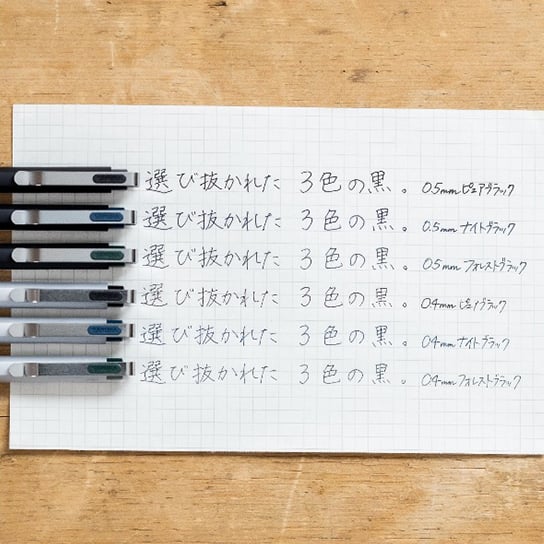 選び抜かれた 3色の黒。 0.5mm ピュアブラック
選び抜かれた 3色の黒。 0.5mm ナイトブラック
選び抜かれた 3色の黒。 0.5mm フォレストブラック
選び抜かれた 3色の黒。 0.4mm ピュアブラック
選び抜かれた 3色の黒。 04mm ナイトブラック
選び抜かれた 3色の黒。 04mm フォレストブラック